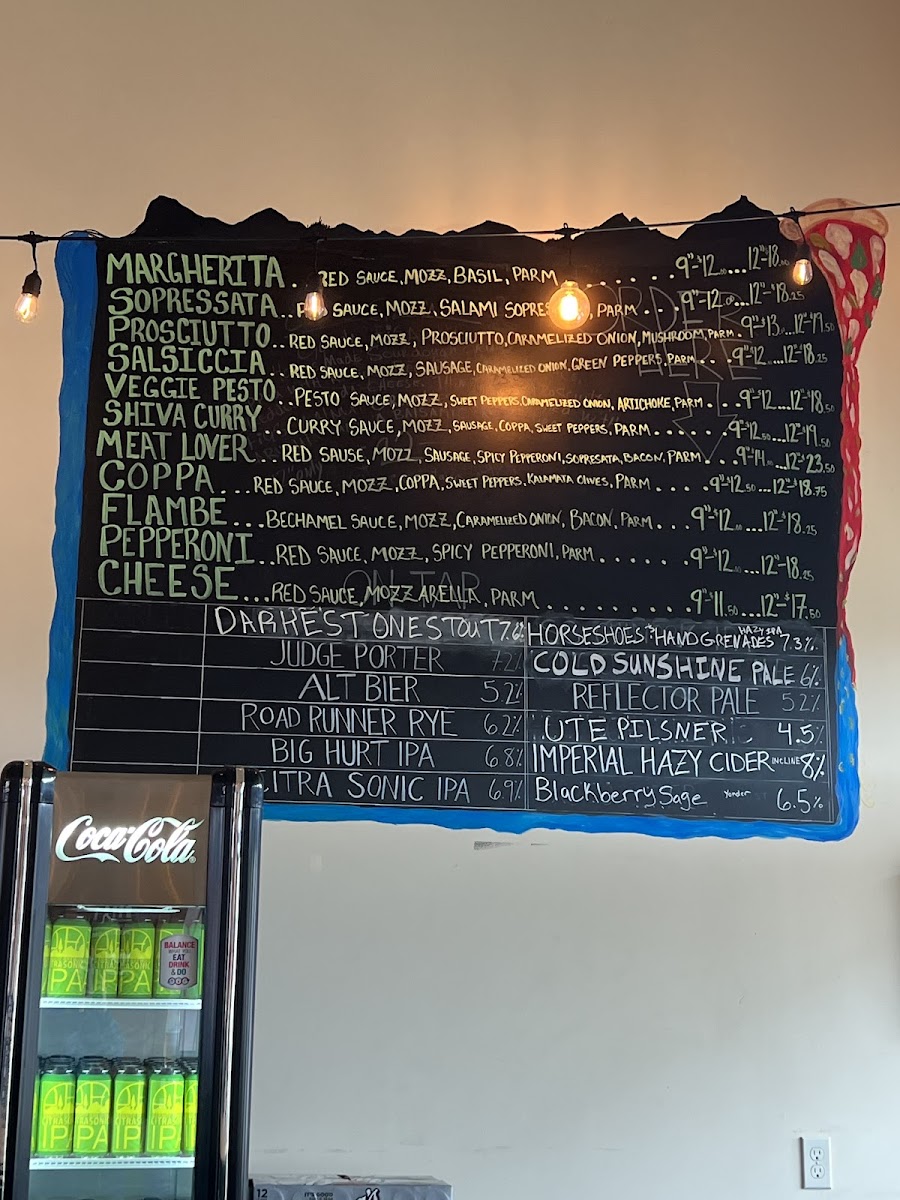 MARGHERITA.. RED SAUCE, MOZZ, BASIL, PARM.......9"-$12.00...12"-$18.00
SOPRESSATA.. SAUCE, MOZZ, SALAMI PARM....9"-12.00...12"-$18.25
PROSCIUTTO..RED SAUCE, MOZZ, PROSCIUTTO, CARAMELIZED ONION, MUSHROOM, PARM.9"-$13...12"-$19.50
SALSICCIA..RED SAUCE, MOZZ, SAUSAGE, CARAMELIZED ONION, GREEN PEPPERS, PARM...9"-$12...12"-$18.25
VEGGIE PESTO..PESTO SAUCE, MOZZ, SWEET PEPPERS, CARAMELIZED ONION, ARTICHOKE, PARM....9"-$12...12"-$18.50
SHIVA CURRY..CURRY SAUCE, MOZZ, SAUSAGE, COPPA, SWEET PEPPERS, PARM......9"-$12.50...12"-$19.50
MEAT LOVER...RED SAUSE, MOZZ, SAUSAGE, SPICY PEPPERONI, SOPRESATA, BACON, PARM..9"-$14...12"-$23.50
COPPA....RED SAUCE, MOZZ, COPPA, SWEET PEPPERS, KALAMATA OLIVES, PARM.....9"-$12.50...12"-$18.75
FLAMBE...BECHAMEL SAUCE, MOZZ, CARAMELIZED ONION, BACON, PARM...9"-$12...12"-$18.25
PEPPERONI...RED SAUCE, MOZZ, SPICY PEPPERONI, PARM......9"-$12...12"-18.25
CHEESE...RED SAUCE, MOZZARELLA, PARM..........9"-$11.50...12"-$17.50
ORDER
HERE
ON TAP
DARKEST ONE STOUT 7.6%
JUDGE PORTER 72%
ALT BIER 52%
ROAD RUNNER RYE 62%
BIG HURT IPA 68%
CITRA SONIC IPA 69%
HORSESHOES & HANDGRENADES HAZY IPA 7.3%
COLD SUNSHINE PALE 6%
REFLECTOR PALE 52%
UTE PILSNER 4.5%
IMPERIAL HAZY CIDER INCLINE 8%
Blackberry Sage Yonder 6.5%
Coca-Cola
BALANCE
WHAT YOU
EAT
DRINK
& DO
CITRASONIC
IPA
12